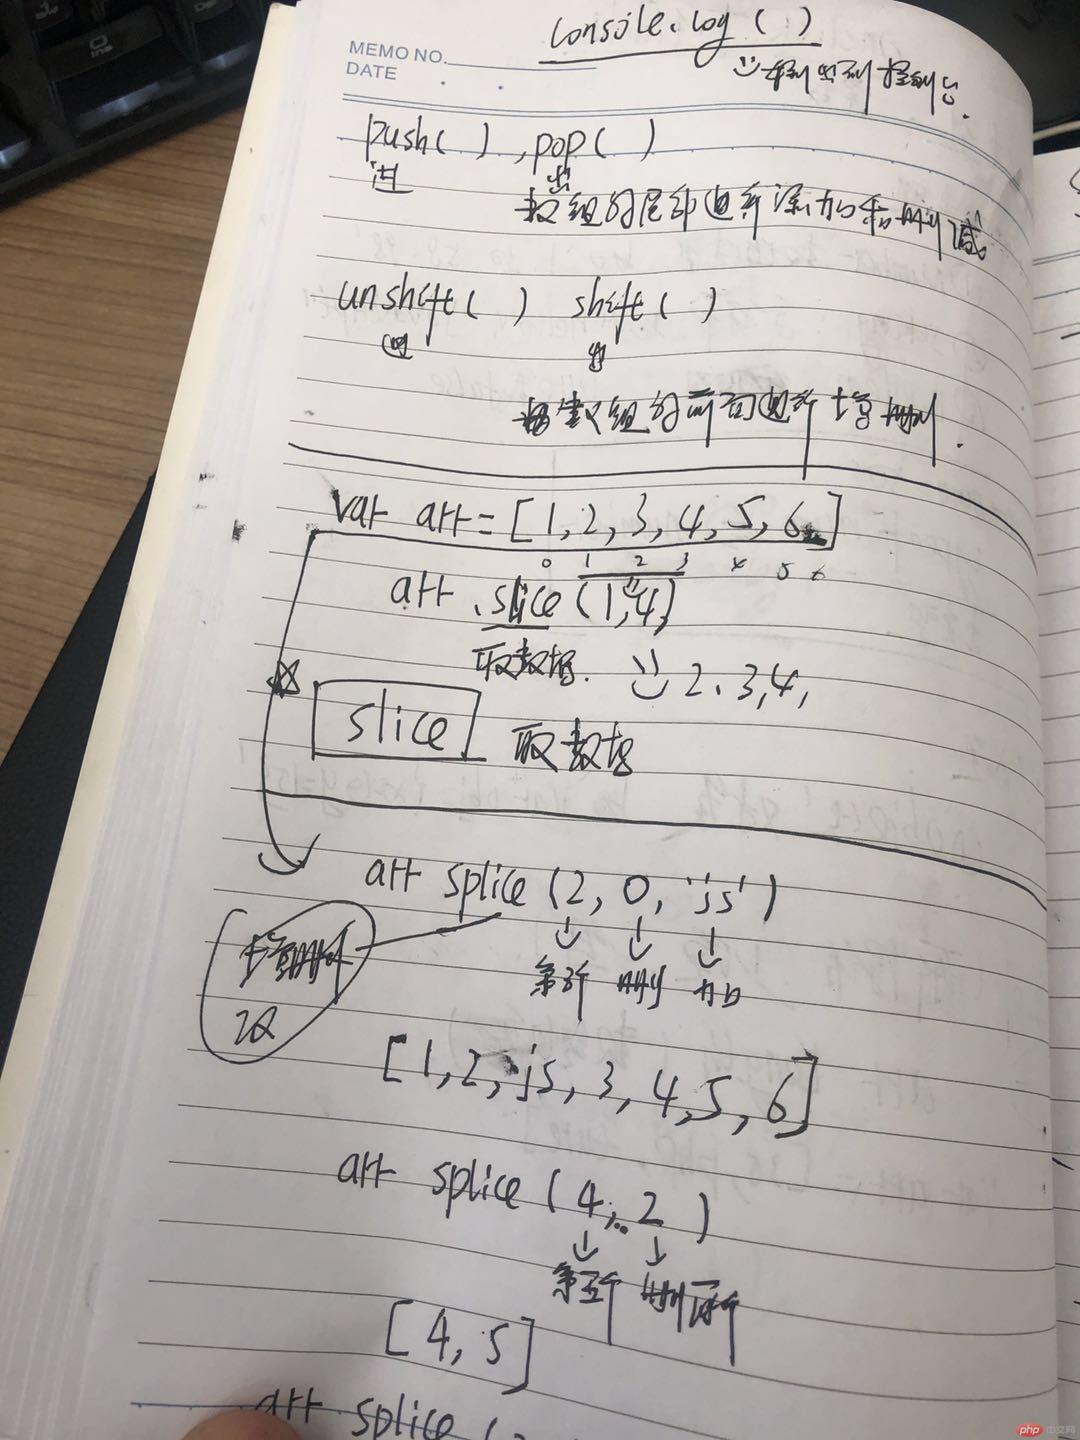 console.log()
MEMO NO.
DATE
push( ), pop( )
进 出
数组的尾部进行添加和删减
unshift( ) shift( )
进 出
数组的前面进行增删.
var arr=[1,2,3,4,5,6]
0 1 2 3 4 5 6
arr.slice(1,4)
取数据. 2、3,4,
slice 取数据
arr splice(2,0,'js')
增删 第3个 删 加
改
[1,2,js,3,4,5,6]
arr splice(4,2)
第五个 删两个
[4,5]
arr splice(
php中文网